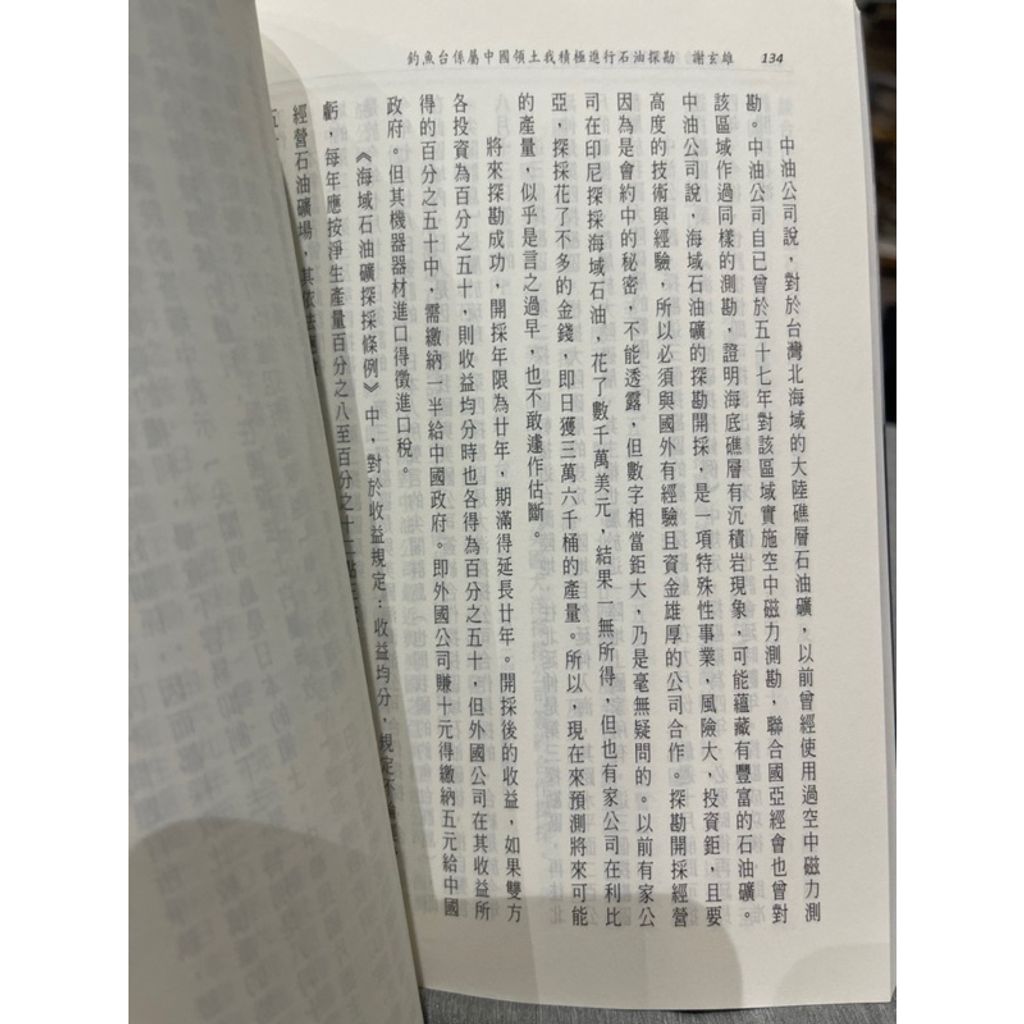 釣魚台係屬中國領土我積極進行石油探勘　謝玄雄　134
中油公司說，對於台灣北海域的大陸礁層石油礦，以前曾經使用過空中磁力測
勘。中油公司自已曾於五十七年對該區域實施空中磁力測勘，聯合國亞經會也曾對
該區域作過同樣的測勘，證明海底礁層有沉積岩現象，可能蘊藏有豐富的石油礦。
中油公司說，海域石油礦的探勘開採，是一項特殊性事業，風險大，投資鉅，且要
高度的技術與經驗，所以必須與國外有經驗且資金雄厚的公司合作。探勘開採經營
因為是會約中的秘密，不能透露，但數字相當鉅大，乃是毫無疑問的。以前有家公
司在印尼探採海域石油，花了數千萬美元，結果一無所得，但也有家公司在利比
亞，探採花了不多的金錢，即日獲三萬六千桶的產量。所以，現在來預測將來可能
的產量，似乎是言之過早，也不敢遽作估斷。
將來探勘成功，開採年限為廿年，期滿得延長廿年。開採後的收益，如果雙方
各投資為百分之五十，則收益均分時也各得為百分之五十，但外國公司在其收益所
得的百分之五十中，需繳納一半給中國政府。即外國公司賺十元得繳納五元給中國
政府。但其機器器材進口得徵進口稅。
《海域石油礦探採條例》中，對於收益規定：收益均分，規定不
虧，每年應按淨生產量百分之八至百分之十二
經營石油礦場，其依法